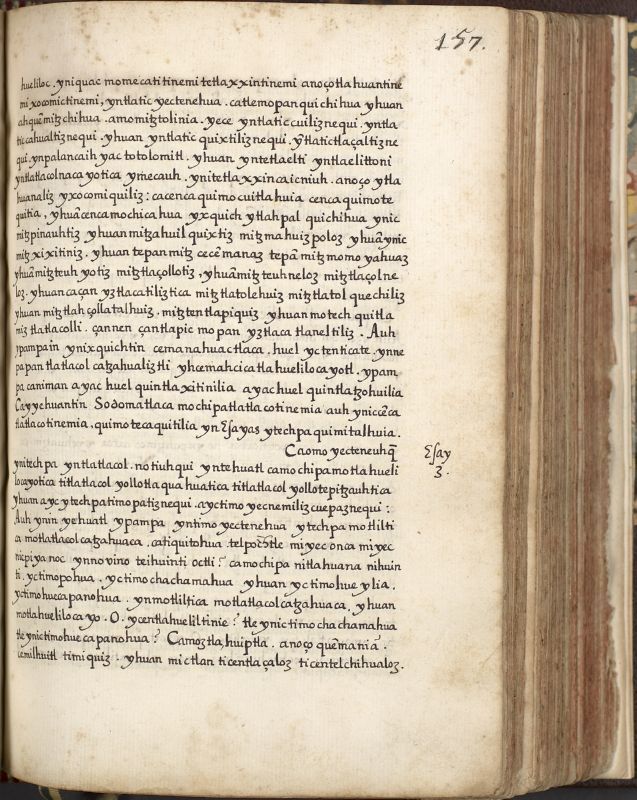 157.
hueliloc. yniquac momecatitinemi tetlaxxintinemi anoçotlahuantine
mi xocomictinemi, yntlatic yectenehua. catlemopan quichihua yhuan
ah quẽ mitz chihua. amo mitztolinia. yece yntlatic cuiliznequi. yntla
tic cahualtiznequi. yhuan yntlatic quixtiliznequi. ỹtlatictlaçaltizne
qui. ynpalancaih yac totolomitl. yhuan yntetlaelti yntlaelittoni
yntlatlacolnacayotica ymecauh. ynitetlaxxincaicniuh. anoço ytla
huanaliz yxocomiquiliz: cacenca quimocuitlahuia cenca quimote
quitia, yhuãcencamochicahua yxquich ytlahpal quichihua ynic
mitzpinauhtiz yhuan mitzahuilquixtiz mitzmahuizpoloz yhuãynic
mitzxixitiniz. yhuan tepan mitz cecẽmanaz tepã mitzmomoyahuaz
yhuãmitzteuhyotiz mitztlaçollotiz, yhuãmitzteuhneloz mitztlaçolne
loz. yhuan caçan yztlacatiliztica mitztlatolehuiz mitztlatolquechiliz
yhuan mitztlahçollatalhuiz. mitztentlapiquiz yhuan motech quitla
miz tlatlacolli. çannen çantlapic mopan yztlacatlaneltiliz. Auh
ypampain ynixquichtin cemanahuactlaca. huel yctenticate. ynne
papan tlatlacol catzahualiztli yhcemahcicatlahuelilocayotl. ypam
pa caniman ayac huel quintlaxitinilia ayac huel quintlatzohuilia
Cayyehuantin Sodomatlaca mochipatlatlacotinemia auh yniccẽca
tlatlacotinemia. quimotecaquitilia yn Esayas ytechpaquimitalhuia.
Caomo yecteneuhq̃
Esay
3.
ynitechpa yntlatlacol. no tiuhqui yntehuatl camochipa motlahueli
locayotica titlatlacol yollotlaquahuatica titlatlacol yollotepitzauhtica
yhuan ayc ytechpatimopatiznequi. ayctimoyecnemilizcuepaznequi:
Auh ynin yehuatl ypampa yntimoyectenehua ytechpa motlilti
ca motlatlacolcatzahuaca. catiquitohua. telpochtle miyec onca miyec
micpiya noc ynno vino teihuinti octli? camochipa nitlahuana nihuin
ti. yctimopohua. yctimochachamahua yhuan yctimohueylia.
yctimohuecapanohua. ynmotliltica motlatlacolcatzahuaca, yhuan
motlahuelilocayo. O. ycentlahueliltinie? tle ynictimochachamahua
tle ynictimohuecapanohua? Camoztla, huiptla. anoço quẽmaniã.
cemilhuitl timiquiz. yhuan mictlan ticentlaçaloz ticentelchihualoz.